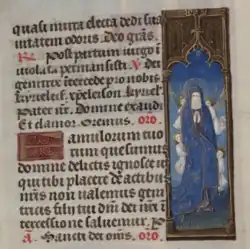 quasi mirra electa dedi sua
uitatem odoris. Deo grãs.
Post partum uirgo in
uiolata permansisti. V dei
genitrix intercede pro nobis.
kyrieleĩ. xp̃eleison. kyriel'.
Pater nr̃. Domine exaudi
Et clamor. Oremus. orõ.
Famulorum tuo
rum quesumus
domine delictis ignosce ut
qui tibi placere de actibus
nr̃is non ualemus geni
tricis filii tui dñi dei nr̃i in
tercessione saluemur. P
a. Sancti dei om̃s. orõ.